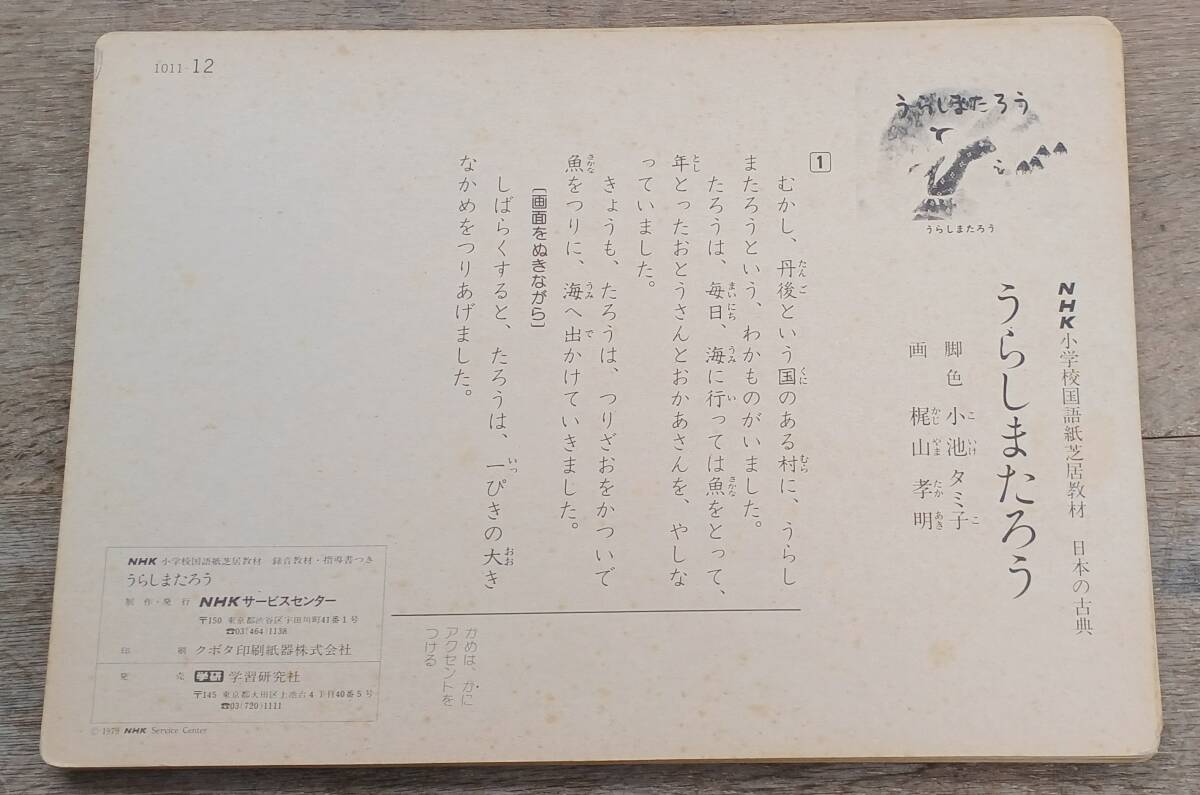 1011-12
うらしまたろう
うらしまたろう
NHK小学校国語紙芝居教材 日本の古典
うらしまたろう
脚色 小池タミ子
画 梶山孝明
1
むかし、丹後という国のある村に、うらし
またろうという、わかものがいました。
たろうは、毎日、海に行っては魚をとって、
年とったおとうさんとおかあさんを、やしな
っていました。
きょうも、たろうは、つりざおをかついで
魚をつりに、海へ出かけていきました。
〔画面をぬきながら〕
しばらくすると、たろうは、一ぴきの大き
なかめをつりあげました。
かめは、かに
アクセントを
つける
NHK 小学校国語紙芝居教材 録音教材・指導書つき
うらしまたろう
制作・発行 NHKサービスセンター
〒150 東京都渋谷区宇田川町41番1号
☎03(464)1138
印刷 クボタ印刷紙器株式会社
発売 学研 学習研究社
〒145 東京都大田区上池台4丁目40番5号
☎03(720)1111
© 1979 NHK Service Center